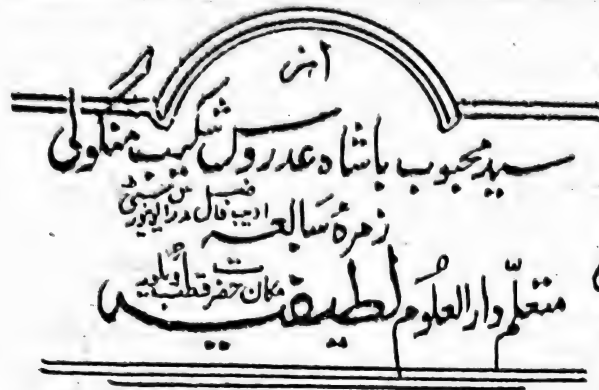 از
سید محبوب باشاہ عدروس شکیب منگولی
زمرۂ سابعہ ادیب فاضل مدراس یونیورسٹی
متعلّم دارالعلوم لطیفیہ مکان حضرت قطب ویلور